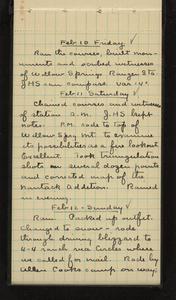 Feb-10 Friday
Ran the courses, built monu-
ments and scribed witnesses
of Willow Springs Ranger Sta.
JHS ran compass. Var 14°
Feb-11 Saturday
Chained courses and witnesses
of station a.m. JHS kept
notes. P.M. rode to top of
Willow Spgs Mt. to examine
its possibilities as a fire lookout
Excellent. Took triangulation
shots on several distant points
and corrected map of the
Mantack Addition. Rained
in evening.
Feb-12 - Sunday
Rain. Packed up outfit.
Changed to snow - rode
through driving blizzard to
4-4 ranch via Circles where
we called for mail. Rode by
Allen Cooks camp on way.